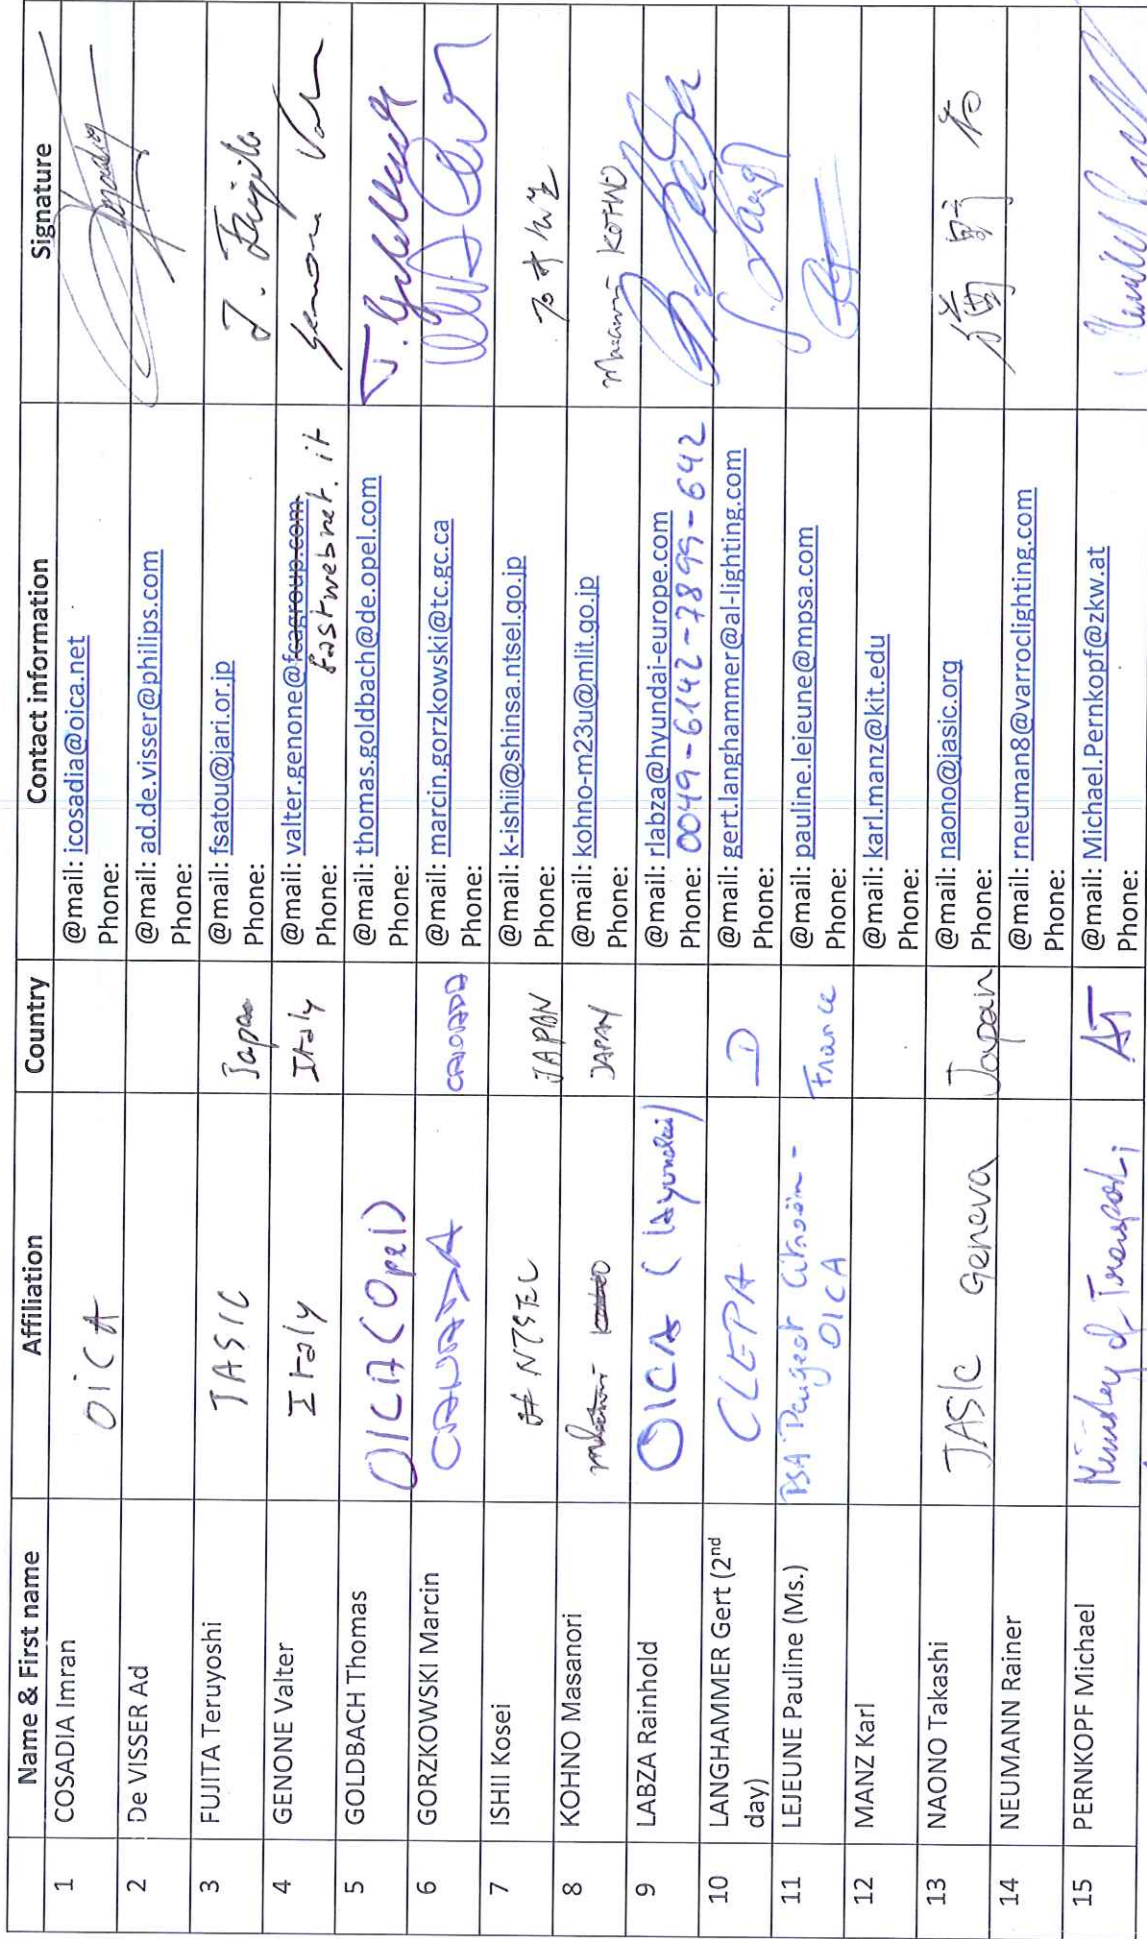 Name & First name Affiliation Country Contact information Signature
1 COSADIA Imran OiCA @mail: icosadia@oica.net
Phone:
2 De VISSER Ad @mail: ad.de.visser@philips.com
Phone:
3 FUJITA Teruyoshi JASIC Japan @mail: fsatou@jari.or.jp
Phone:
4 GENONE Valter Italy Italy @mail: valter.genone@fcagroup.com
Phone: fastwebnet.it
5 GOLDBACH Thomas OICA (Opel) @mail: thomas.goldbach@de.opel.com
Phone:
6 GORZKOWSKI Marcin CANADA CANADA @mail: marcin.gorzkowski@tc.gc.ca
Phone:
7 ISHII Kosei NTSEL JAPAN @mail: k-ishii@shinsa.ntsel.go.jp
Phone:
8 KOHNO Masanori JAPAN @mail: kohno-m23u@mlit.go.jp Masanori KOHNO
Phone:
9 LABZA Rainhold OICA (Hyundai) @mail: rlabza@hyundai-europe.com
Phone: 0049-6142-7899-642
10 LANGHAMMER Gert (2nd CLEPA D @mail: gert.langhammer@al-lighting.com
day) Phone:
11 LEJEUNE Pauline (Ms.) PSA Peugeot Citroën - France @mail: pauline.lejeune@mpsa.com
OICA Phone:
12 MANZ Karl @mail: karl.manz@kit.edu
Phone:
13 NAONO Takashi JASIC Geneva Japan @mail: naono@jasic.org
Phone:
14 NEUMANN Rainer @mail: rneuman8@varroclighting.com
Phone:
15 PERNKOPF Michael Ministry of Transport; AT @mail: Michael.Pernkopf@zkw.at
Phone: